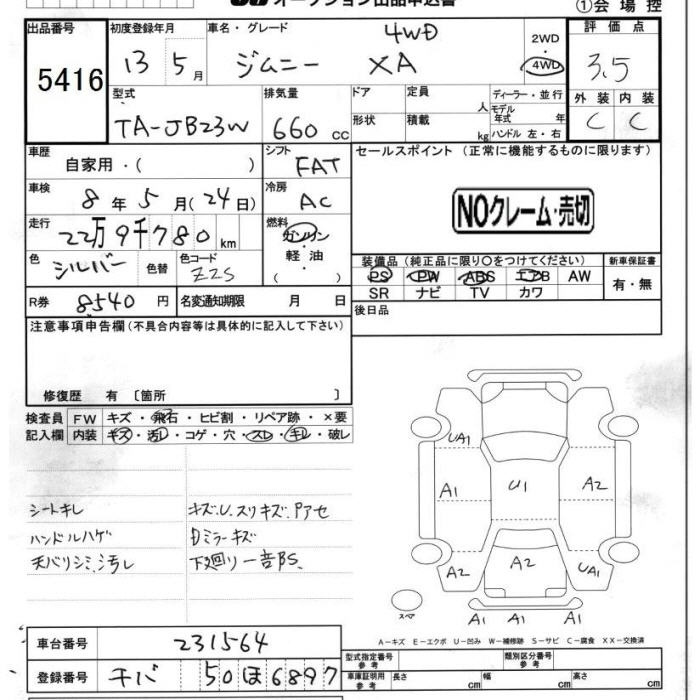 オークション出品申込書
①会場控
出品番号
5416
初度登録年月
13 5月
車名・グレード
4WD
ジムニー XA
2WD・4WD
評価点
3.5
外装 内装
C C
型式
TA-JB23W
排気量
660 cc
ドア
形状
定員 人
積載 kg
ディーラー・並行
モデル年式 年
ハンドル 左・右
車歴
自家用・( )
シフト
FAT
車検
8年5月(24日)
冷房
AC
走行
22万9千780km
燃料
ガソリン・軽油・( )
色
シルバー
色替
色コード
Z2S
R券 8540円
名変通知期限 月 日
セールスポイント (正常に機能するものに限ります)
NOクレーム・売切
装備品 (純正品に限り〇をつけてください)
PS PW ABS エアB AW
SR ナビ TV カワ
新車保証書
有・無
後日品
注意事項申告欄(不具合内容等は具体的に記入して下さい)
修復歴 有 〔箇所 〕
検査員記入欄
FW キズ・飛石・ヒビ割・リペア跡・×要
内装 キズ・汚レ・コゲ・穴・スレ・キレ・破レ
シートキレ
ハンドルハゲ
天バリシミ、汚レ
キズU、スリキズ、Pアセ
Dミラーキズ
下廻り一音BS
UA1
A1
U1
A2
A2
A2
UA1
A1 A1 A1
スペア
A-キズ E-エクボ U-凹み W-補修跡 S-サビ C-腐食 XX-交換済
車台番号 231564
登録番号 チバ 50 ほ 6897
型式指定番号 参考
類別区分番号 参考
車庫証明用 参考
長さ cm
幅 cm
高さ cm